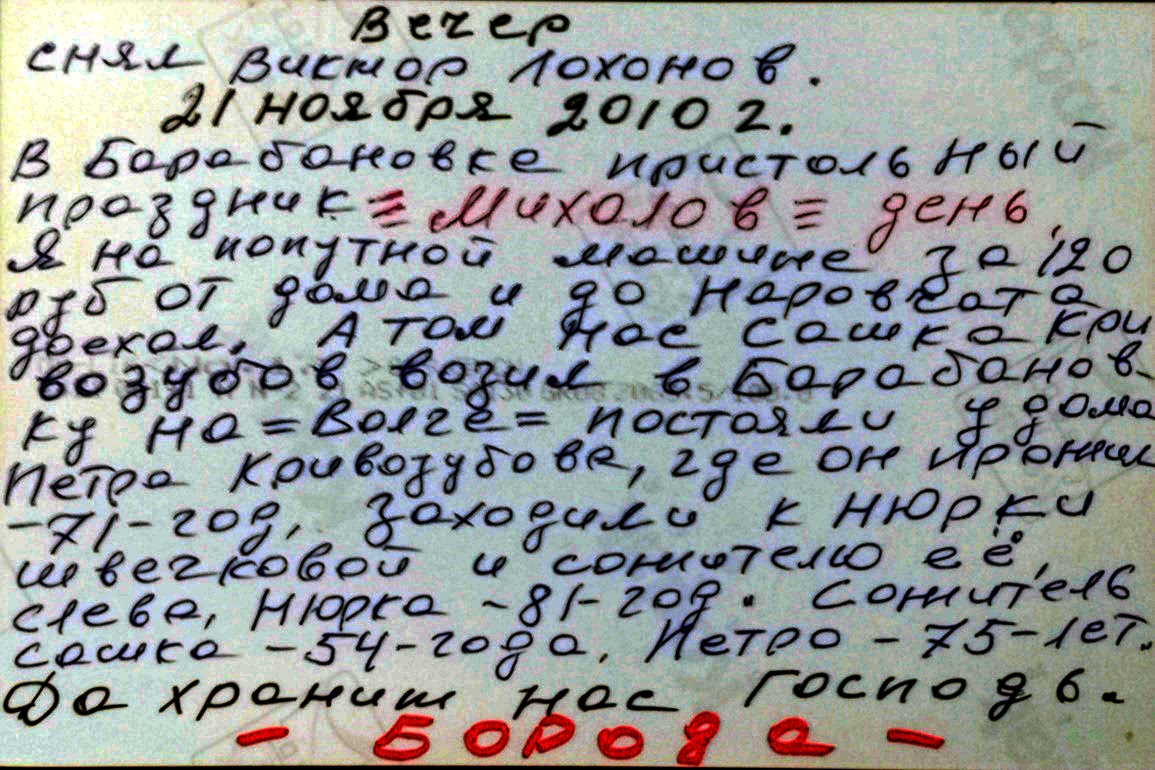 Вечер
снял Виктор Лохонов.
21 ноября 2010 г.
В Барабановке пристольный
праздник ≡ Михолов ≡ день,
Я на попутной машине за 120
руб от дома и до Наровчата
доехал. А там нас Сашка Кри
возубов возил в Барабанов-
ку на = Волге = постояли у дома
Петра Кривозубова, где он прожил
-71- год, заходили к Нюрки
швечковой и сожителю её,
слева, Нюрка -81- год. Сожитель
Сашка -54- года, Петро -75- лет.
Да хранит нас Господь.
- БОРОДА -